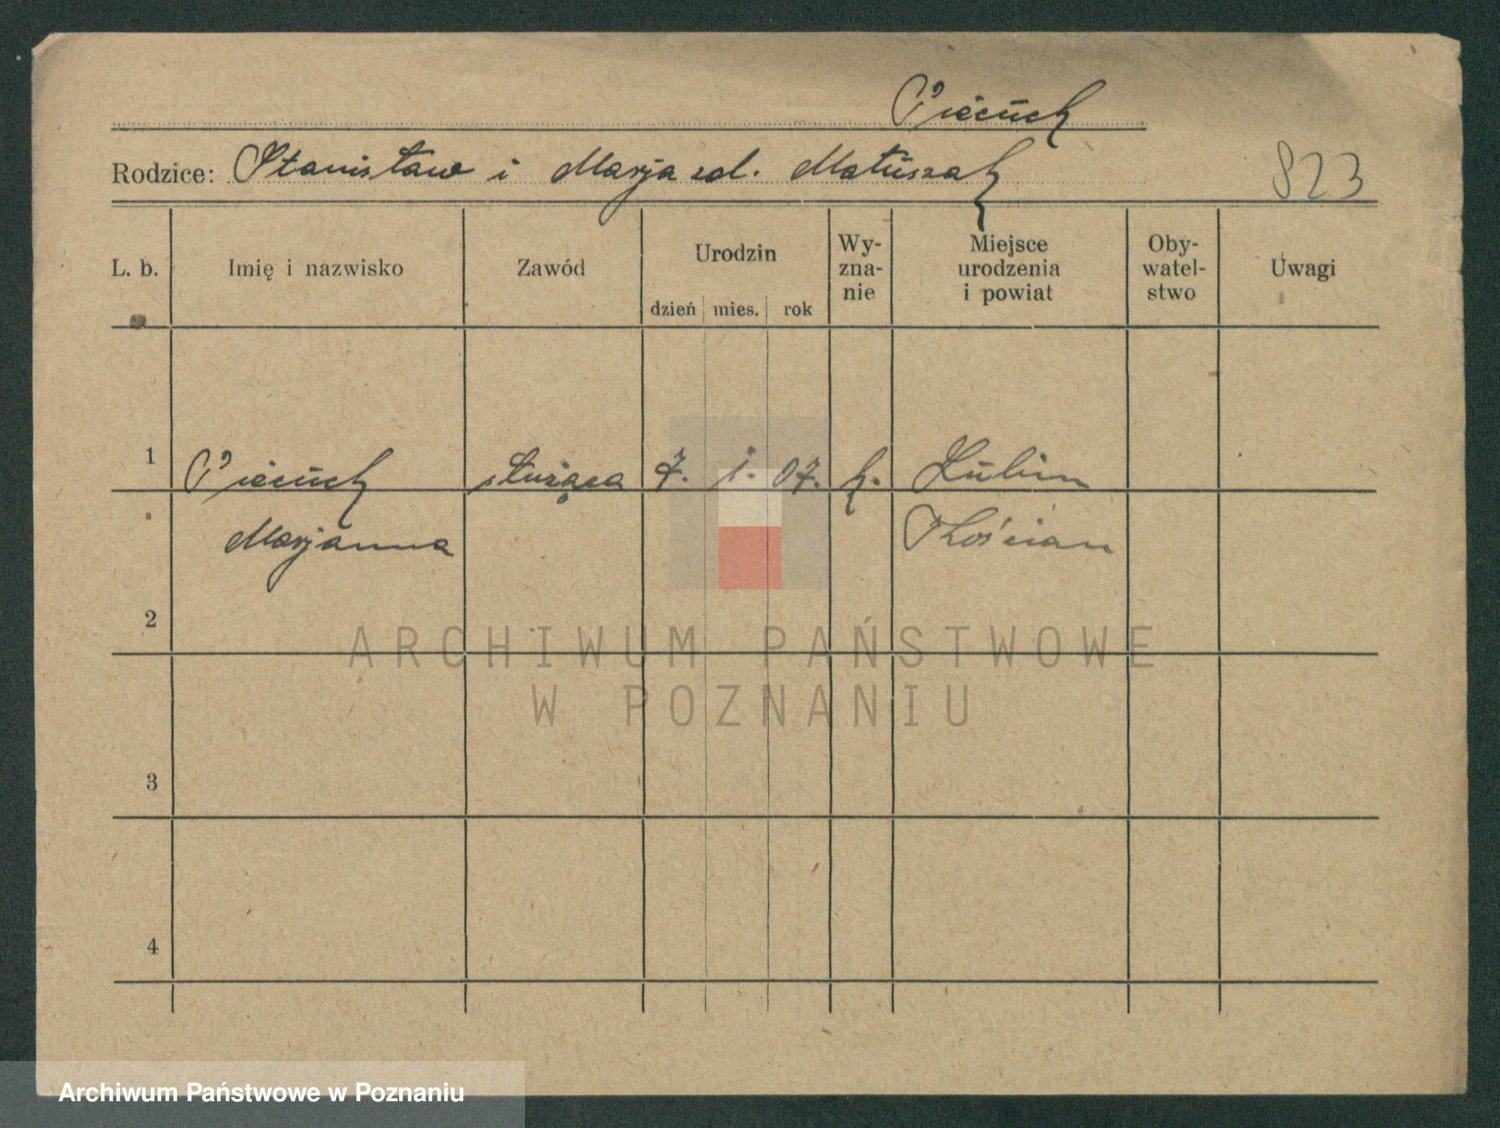 Pieciuch
Rodzice: Stanisław i Marja zd. Matuszak
823
L. b. Imię i nazwisko Zawód Urodzin dzień mies. rok Wy-zna-nie Miejsce urodzenia i powiat Oby-watel-stwo Uwagi
1 Pieciuch służąca 7. 1. 07. k. Lubin
Marjanna Kościan
2
ARCHIWUM PAŃSTWOWE
W POZNANIU
3
4
Archiwum Państwowe w Poznaniu